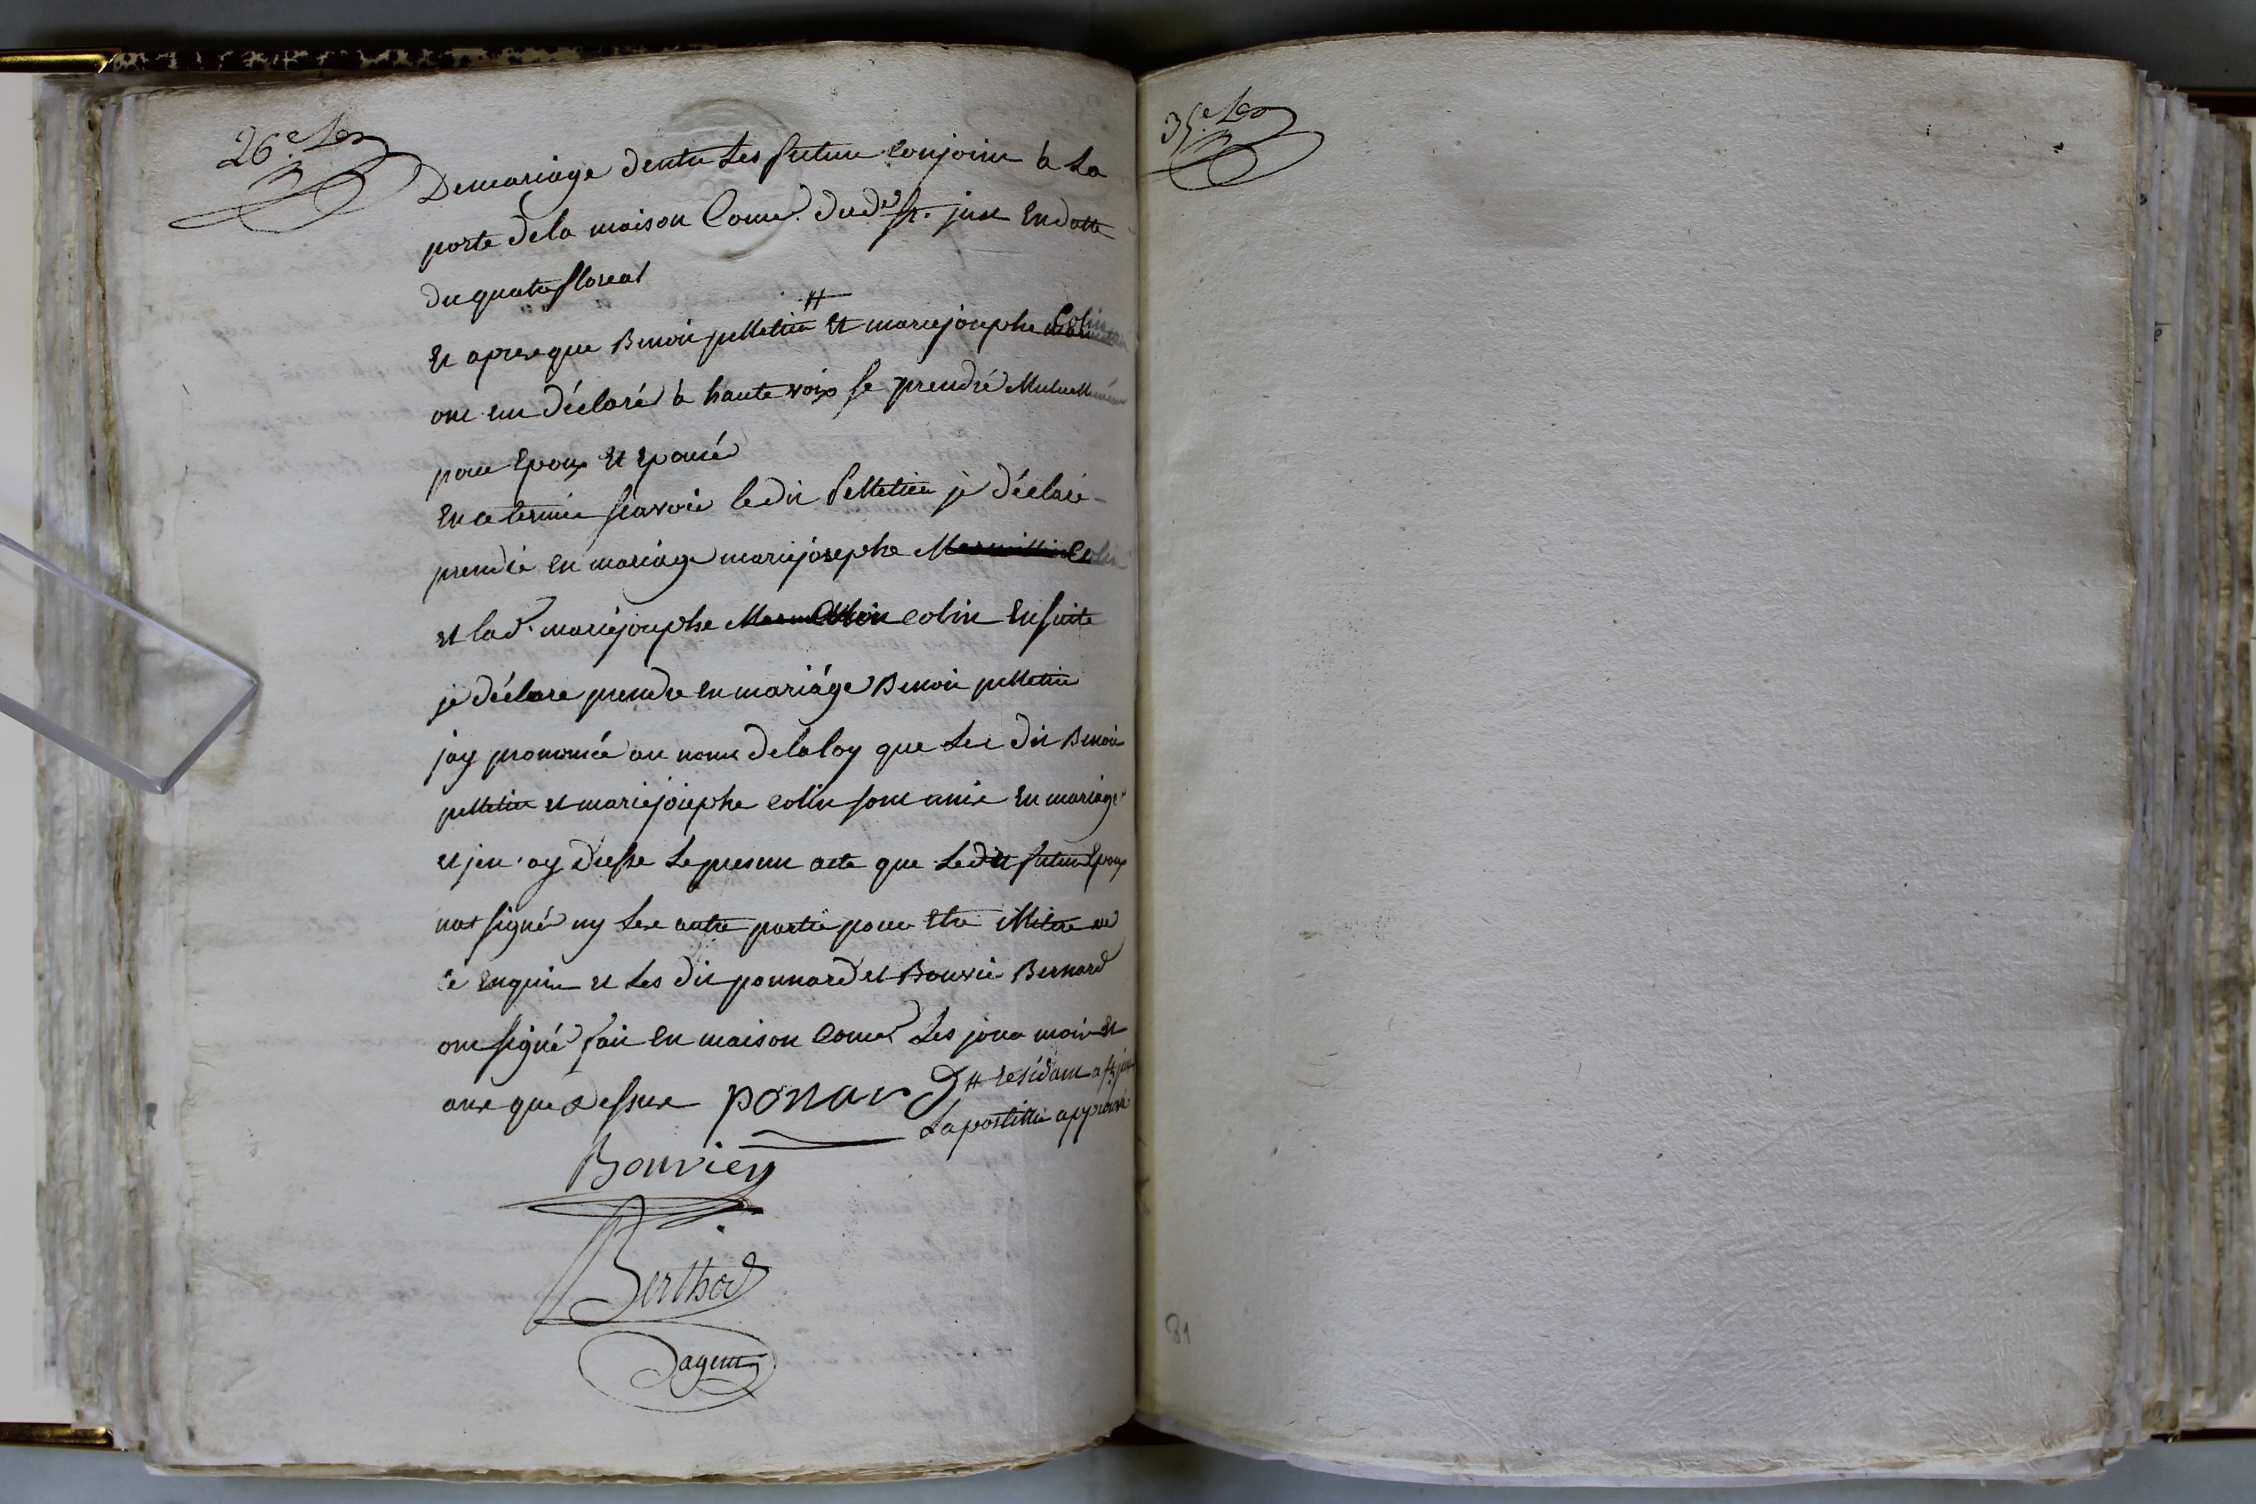 26.e
Demariage dentre Les futur conjoins à La
porte dela maison Come. dud. st. just En datte
du quatre floreal
Et apres que Benoit pelletier # Et mariejosephe Colin
ont Eux déclaré à haute voix se prendre Mutuellement
pour Epoux Et Epouse
En ce terme scavoir ledit Pelletier je déclare
prendre en mariage mariejosephe Mermillin Colin
et lad. mariejosephe Mermillin colin Ensuite
je déclare prendre en mariage Benoit pelletier
jay prononcé au nom delaloy que Les dit Benoit
pelletier et mariejosephe colin sont unis En mariage
et jen ay dressé Le present acte que Ledit futur Epoux
nat signé ny Les autre partie pour Etre illitere de
ce Enquis et Les dit ponnard et Bouvier Bernard
ont signé fait En maison Come Les jour mois Et
ans que dessus ponard # residant a st just
Lapostille approuvé
Bouvier
Berthod
agent
35.e
81